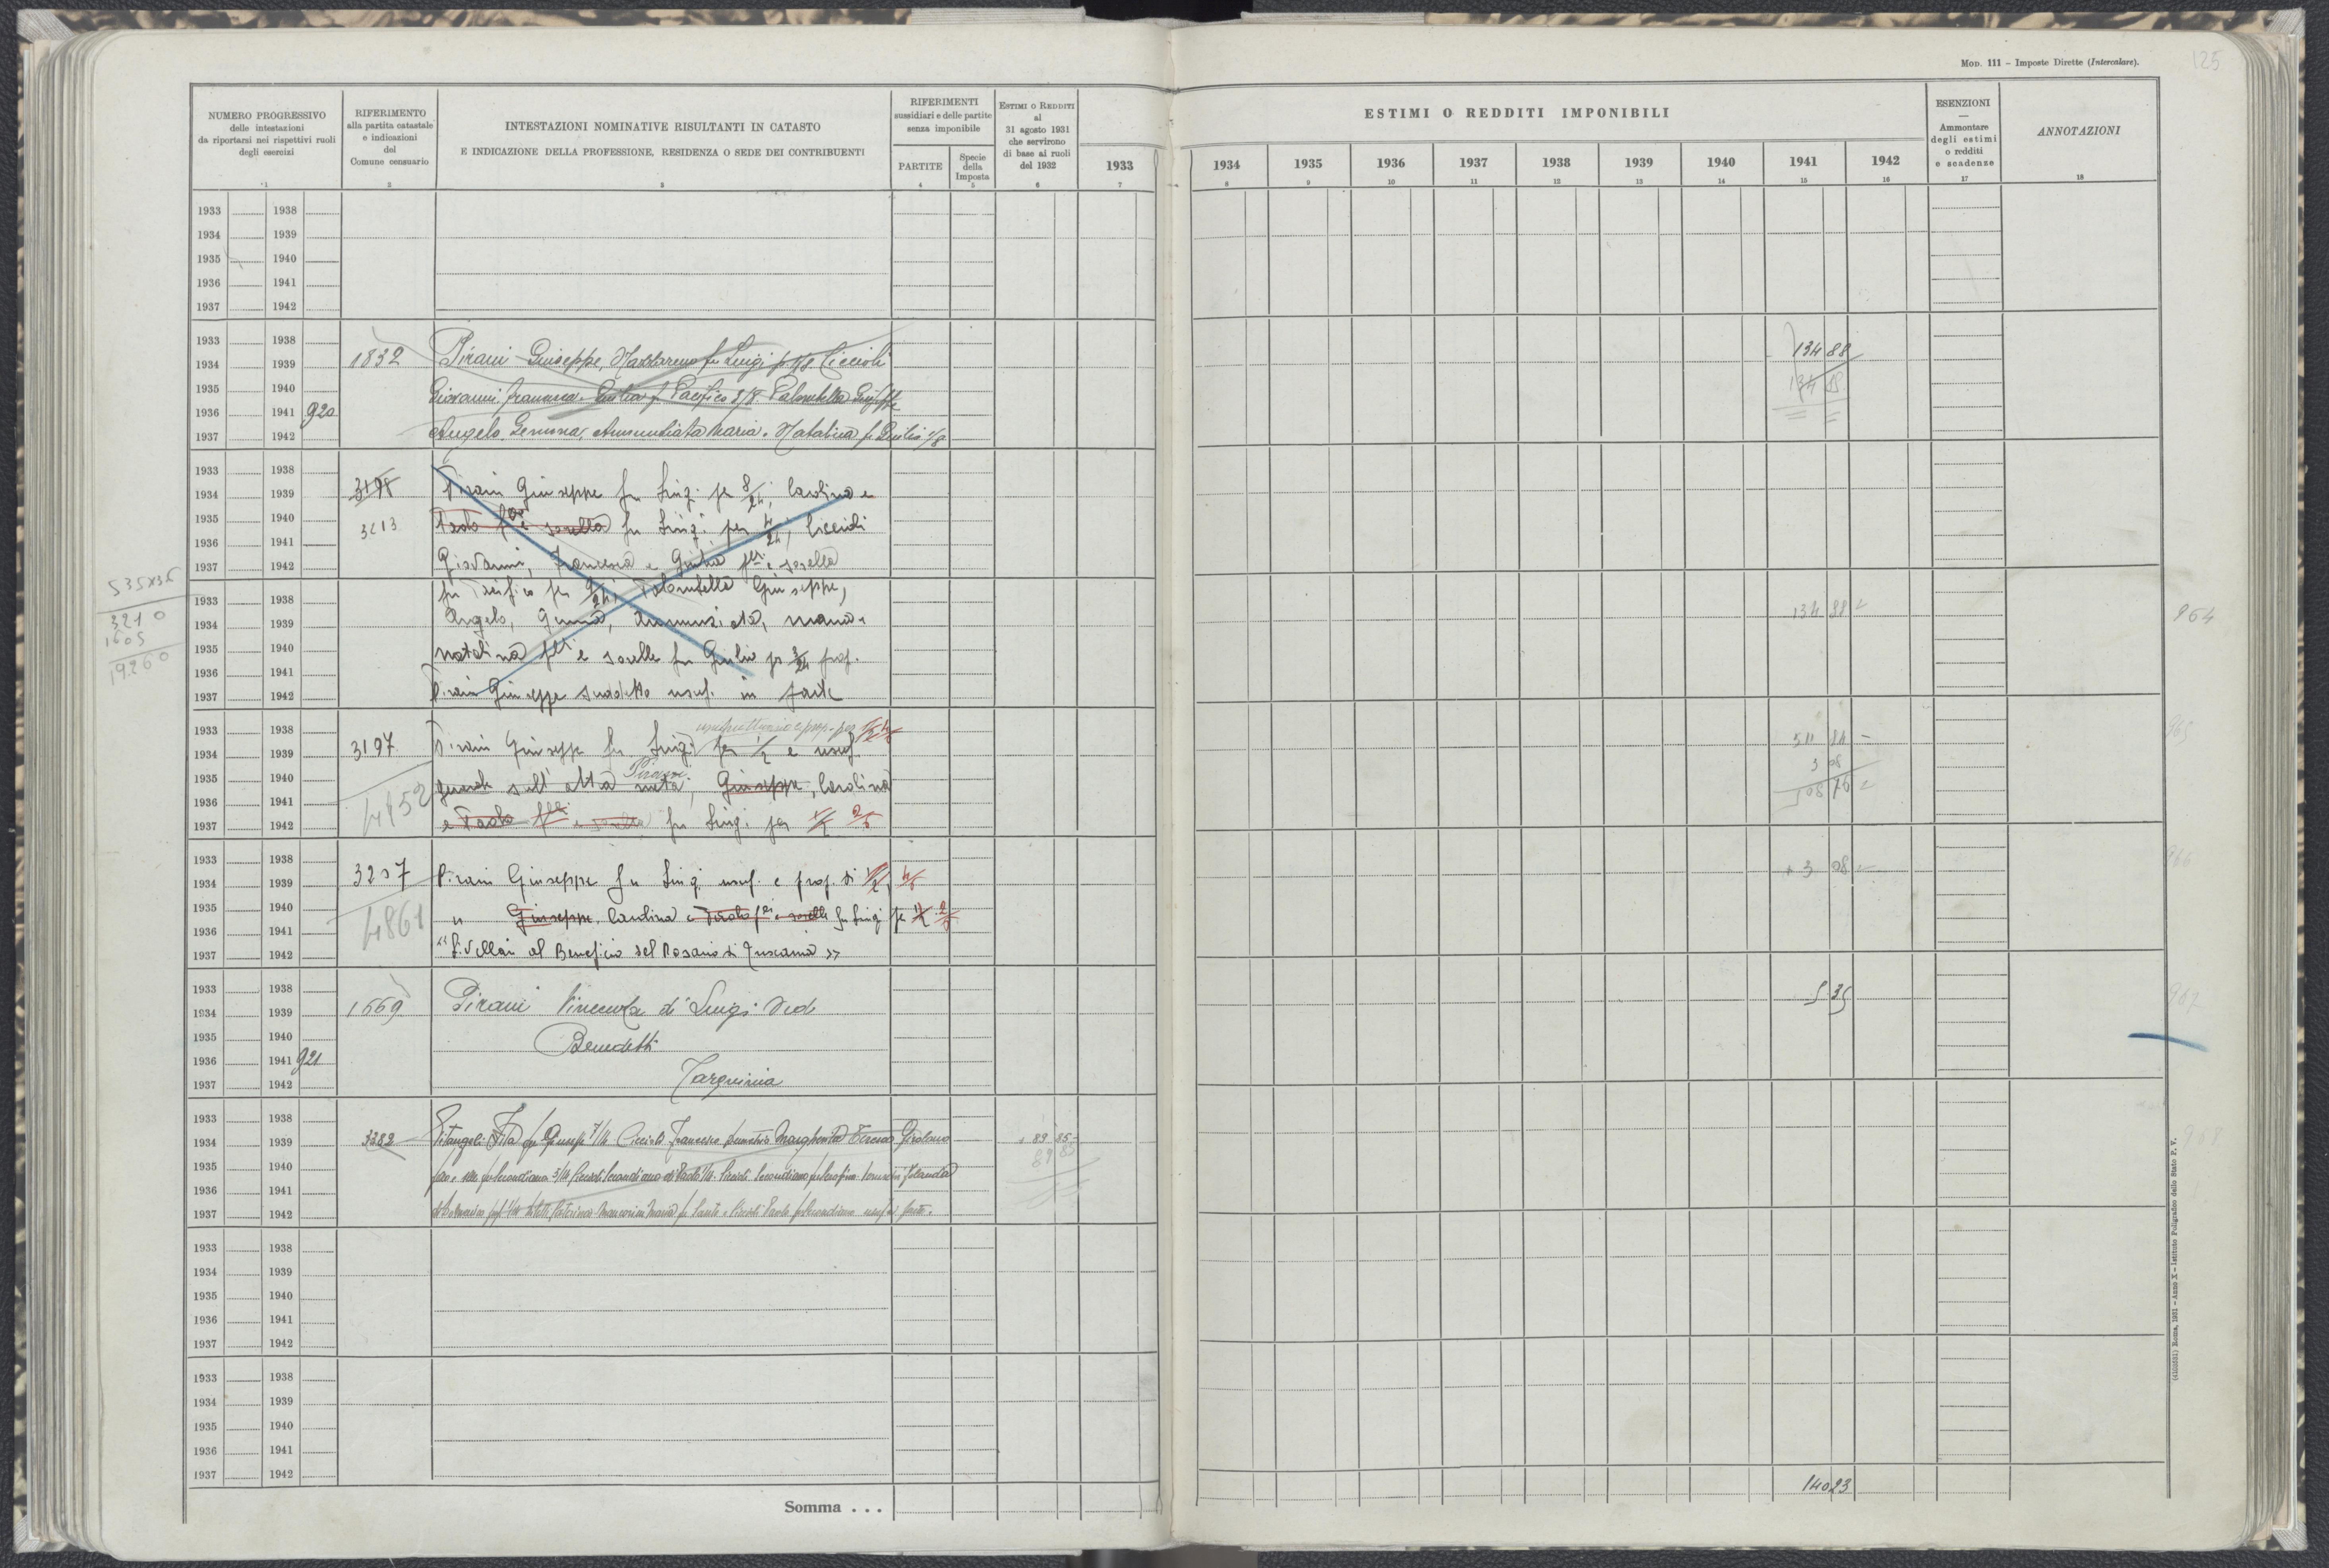 Mod. 111 – Imposte Dirette (Intercalare).
125
NUMERO PROGRESSIVO
delle intestazioni
da riportarsi nei rispettivi ruoli
degli esercizi
1
RIFERIMENTO
alla partita catastale
e indicazioni
del
Comune censuario
2
INTESTAZIONI NOMINATIVE RISULTANTI IN CATASTO
E INDICAZIONE DELLA PROFESSIONE, RESIDENZA O SEDE DEI CONTRIBUENTI
3
RIFERIMENTI
sussidiari e delle partite
senza imponibile
PARTITE
4
Specie
della
Imposta
5
Estimi o Redditi
al
31 agosto 1931
che servirono
di base ai ruoli
del 1932
6
1933
7
ESTIMI O REDDITI IMPONIBILI
1934 1935 1936 1937 1938 1939 1940 1941 1942
8 9 10 11 12 13 14 15 16
ESENZIONI
—
Ammontare
degli estimi
o redditi
e scadenze
17
ANNOTAZIONI
18
1933 1938
1934 1939
1935 1940
1936 1941
1937 1942
1933 1938
1934 1939 1832 Pirani Giuseppe, Nazzareno fu Luigi p. 4/8 Ciccioli 134 88
1935 1940 Giovanni, Francesca, Giulia f Pacifico 3/8. Palombella Giuseppe 134 88
1936 1941 920
1937 1942 Angelo, Gemma, Annunziata Maria, Natalina fu Giulio 1/8
1933 1938
1934 1939 3198 Pirani Giuseppe fu Luigi per 8/24; Carolina e
1935 1940 3613 Paolo f.lli e sorella fu Luigi per 4/24; Ciccioli
1936 1941 Giovanni, Francesca e Giulia f.lli e sorella
1937 1942
535x36
3210
1605
19260
1933 1938 fu Pacifico per 9/24; Palombella Giuseppe,
1934 1939 Angelo, Gemma, Annunziata, Maria e 134 88 964
1935 1940 Natalina f.lli e sorelle fu Giulio per 3/24 prop.
1936 1941
1937 1942 Pirani Giuseppe suddetto usuf. in parte
1933 1938 usufruttuario e prop. per
1934 1939 3197 Pirani Giuseppe fu Luigi per 1/2 e usuf. 511 84 965
1935 1940 generale sull'altra metà, Pirani Giuseppe, Carolina 3 08
1936 1941 4452 508 76
1937 1942 e Paolo f.lli e sorella fu Luigi per 1/2 2/6
1933 1938
1934 1939 3207 Pirani Giuseppe fu Luigi usuf. e prop. di 1/2, 4/6 + 3 08 966
1935 1940 " Giuseppe, Carolina e Paolo f.lli e sorella fu Luigi per 1/2 2/6
1936 1941 4861
1937 1942 "Livellari al Beneficio del Rosario di Tuscania"
1933 1938
1934 1939 1669 Pirani Vincenza di Luigi Ved 5 35 967
1935 1940 Benedetti
1936 1941 921
1937 1942 Tarquinia
1933 1938
1934 1939 3382 + 83 85 968
1935 1940
1936 1941
1937 1942
1933 1938
1934 1939
1935 1940
1936 1941
1937 1942
1933 1938
1934 1939
1935 1940
1936 1941
1937 1942
Somma . . . 140 23
(4103531) Roma, 1931 – Anno X – Istituto Poligrafico dello Stato P. V.